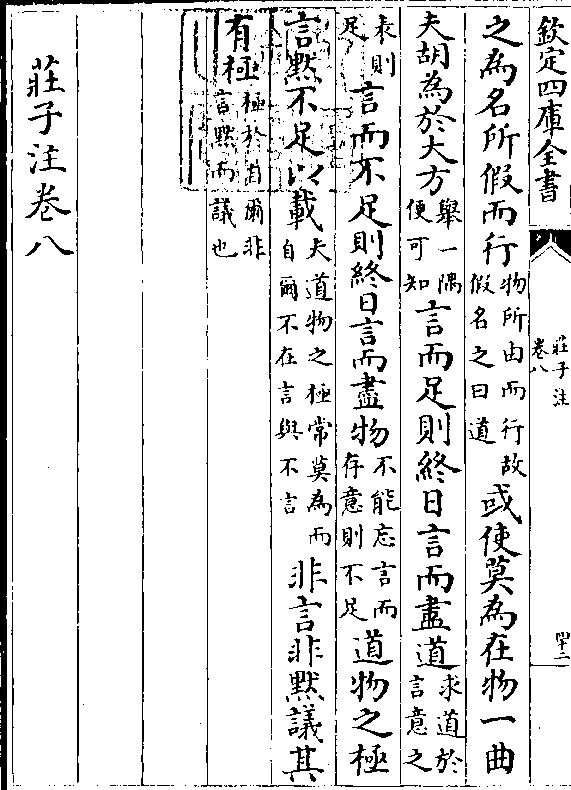 欽定四庫全書
莊子注
卷八
四十二
之為名所假而行物所由而行故假名之曰道或使莫為在物一曲
夫胡為於大方舉一隅便可知言而足則終日言而盡道求道於言意之
表則足言而不足則終日言而盡物不能忘言而存意則不足道物之極
言默不足以載夫道物之極常莫為而自爾不在言與不言非言非默議其
有極極於自爾非言默而議也
莊子注卷八